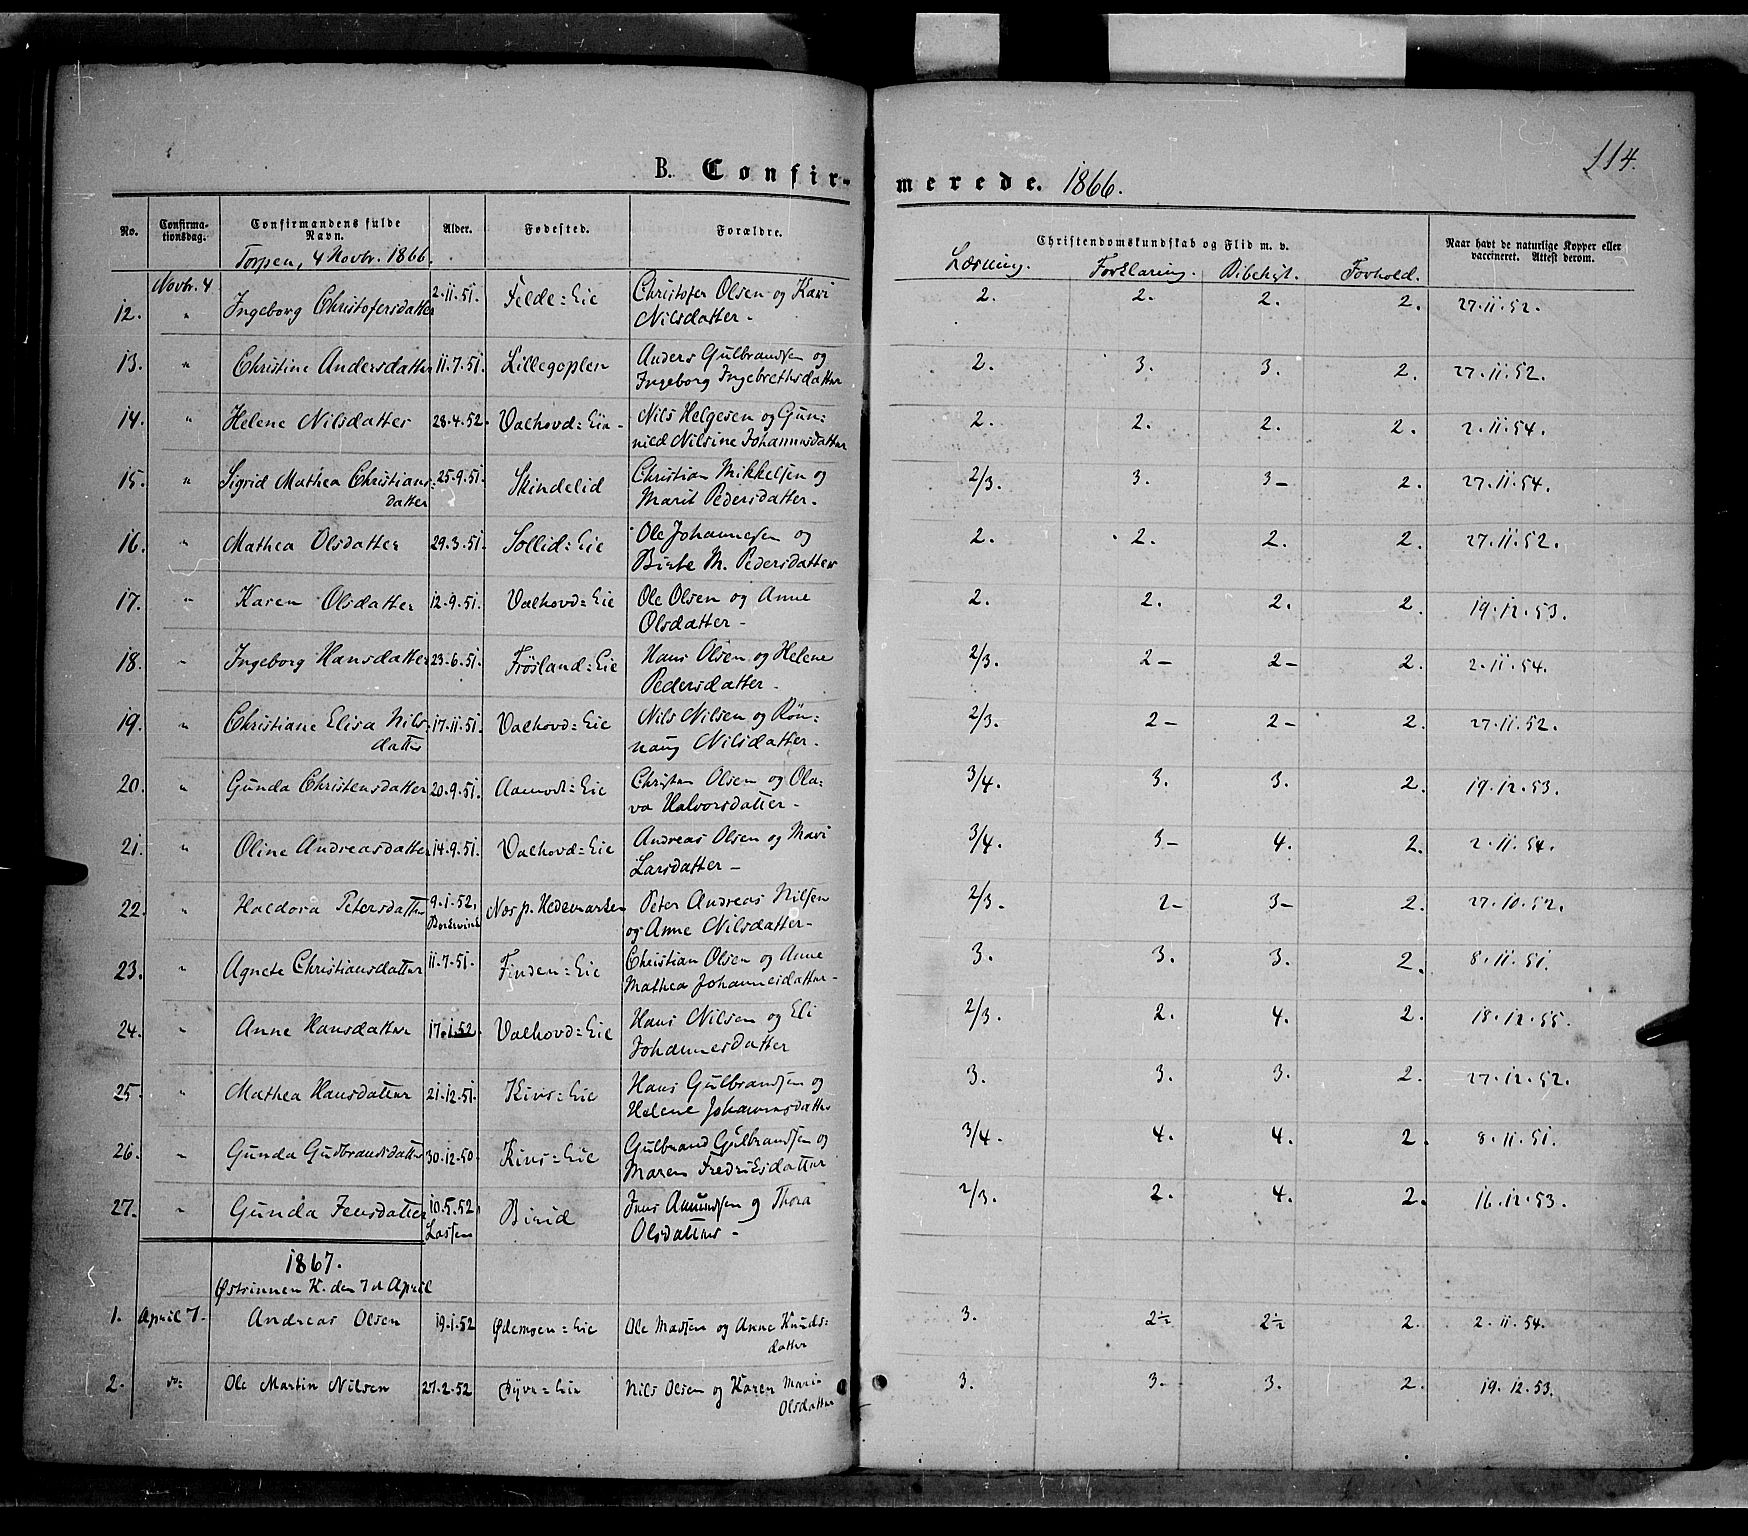 114.
B. Confir- merede. 1866.
No. Confirma-tionsdag. Confirmandens fulde Navn. Alder. Fødested. Forældre. Christendomskundskab og Flid m. v. Naar havt de naturlige Kopper eller vaccineret. Attest derom.
Torpen, 4 Novbr. 1866. Læsning. Forklaring. Bibelhist. Forhold.
12. Novbr. 4. " Ingeborg Christofersdatter 2.11.51. Felde=Eie Christofer Olsen og Kari Nilsdatter - 2. 2. 2. 2. 27.11.52.
13. " Christine Andersdatter 11.7.51. Lillegoplen Anders Gulbrandsen og Ingeborg Ingebrethsdatter 2. 3. 3. 2. 27.11.52.
14. " Helene Nilsdatter 28.4.52. Valhovd=Eie - Nils Helgesen og Gun=nild Nilsine Johannesdatter 2. 2. 2. 2. 2.11.54.
15. " Sigrid Mathea Christians=datter 25.9.51. Skindelid Christian Mikkelsen og Marit Pedersdatter - 2/3. 3. 3- 2. 27.11.54.
16. " Mathea Olsdatter 29.3.51. Sollid=Eie Ole Johannesen og Birte M. Pedersdatter 2. 2. 2. 2. 27.11.52.
17. " Karen Olsdatter 12.9.51. Valhovd=Eie Ole Olsen og Anne Olsdatter - 2. 2. 2. 2. 19.12.53.
18. " Ingeborg Hansdatter 23.6.51. Frøsland=Eie Hans Olsen og Helene Pedersdatter - 2/3. 2- 2- 2. 2.11.54.
19. " Christiane Elisa Nils=datter 17.11.51. Valhovd=Eie Nils Nilsen og Røn=naug Nilsdatter - 2/3. 2- 2- 2. 27.11.52.
20. " Gunda Christensdatter 20.9.51. Aamodt=Eie Christen Olsen og Ola=va Halvorsdatter - 3/4. 3. 3. 2. 19.12.53.
21. " Oline Andreasdatter 14.9.51. Valhovd=Eie Andreas Olsen og Mari Larsdatter - 3/4. 3- 4. 2. 2.11.54.
22. " Haldora Petersdatter 9.1.52. Næs p. Hedemarken Peter Andreas Nilsen og Anne Nilsdatter - 2/3. 2- 3- 2. 27.10.52.
23. " Agnete Christiansdatter 11.7.51. Finden=Eie Christian Olsen og Anne Mathea Johannesdatter - 3. 3. 3. 2. 8.11.51.
24. " Anne Hansdatter 17.1.52. Valhovd=Eie Hans Nilsen og Eli Johannesdatter 2/3. 2. 4. 2. 18.12.55.
25. " Mathea Hansdatter 21.12.51. Kins=Eie Hans Gulbrandsen og Helene Johannesdatter 3. 3. 3. 2. 27.12.52.
26. " Gunda Gudbrandsdatter 30.12.50. Kins=Eie Gulbrand Gulbrandsen og Maren Fredriksdatter 3/4. 4. 4. 2. 8.11.51.
27. " Gunda Jensdatter 10.5.52. Lassen Birid Jens Amundsen og Thora Olsdatter - 2/3. 2. 4. 2. 16.12.53.
1867.
Østsinnen K. den 7d April
1. April 7. Andreas Olsen 19.1.52 Ødemoen=Eie Ole Madsen og Anne Knuds=datter 3. 2½ 2½ 2. 2.11.54.
2. do= Ole Martin Nilsen 27.2.52 Nils Olsen og Karen Marie Olsdatter 3. 3- 3. 2. 19.12.53.